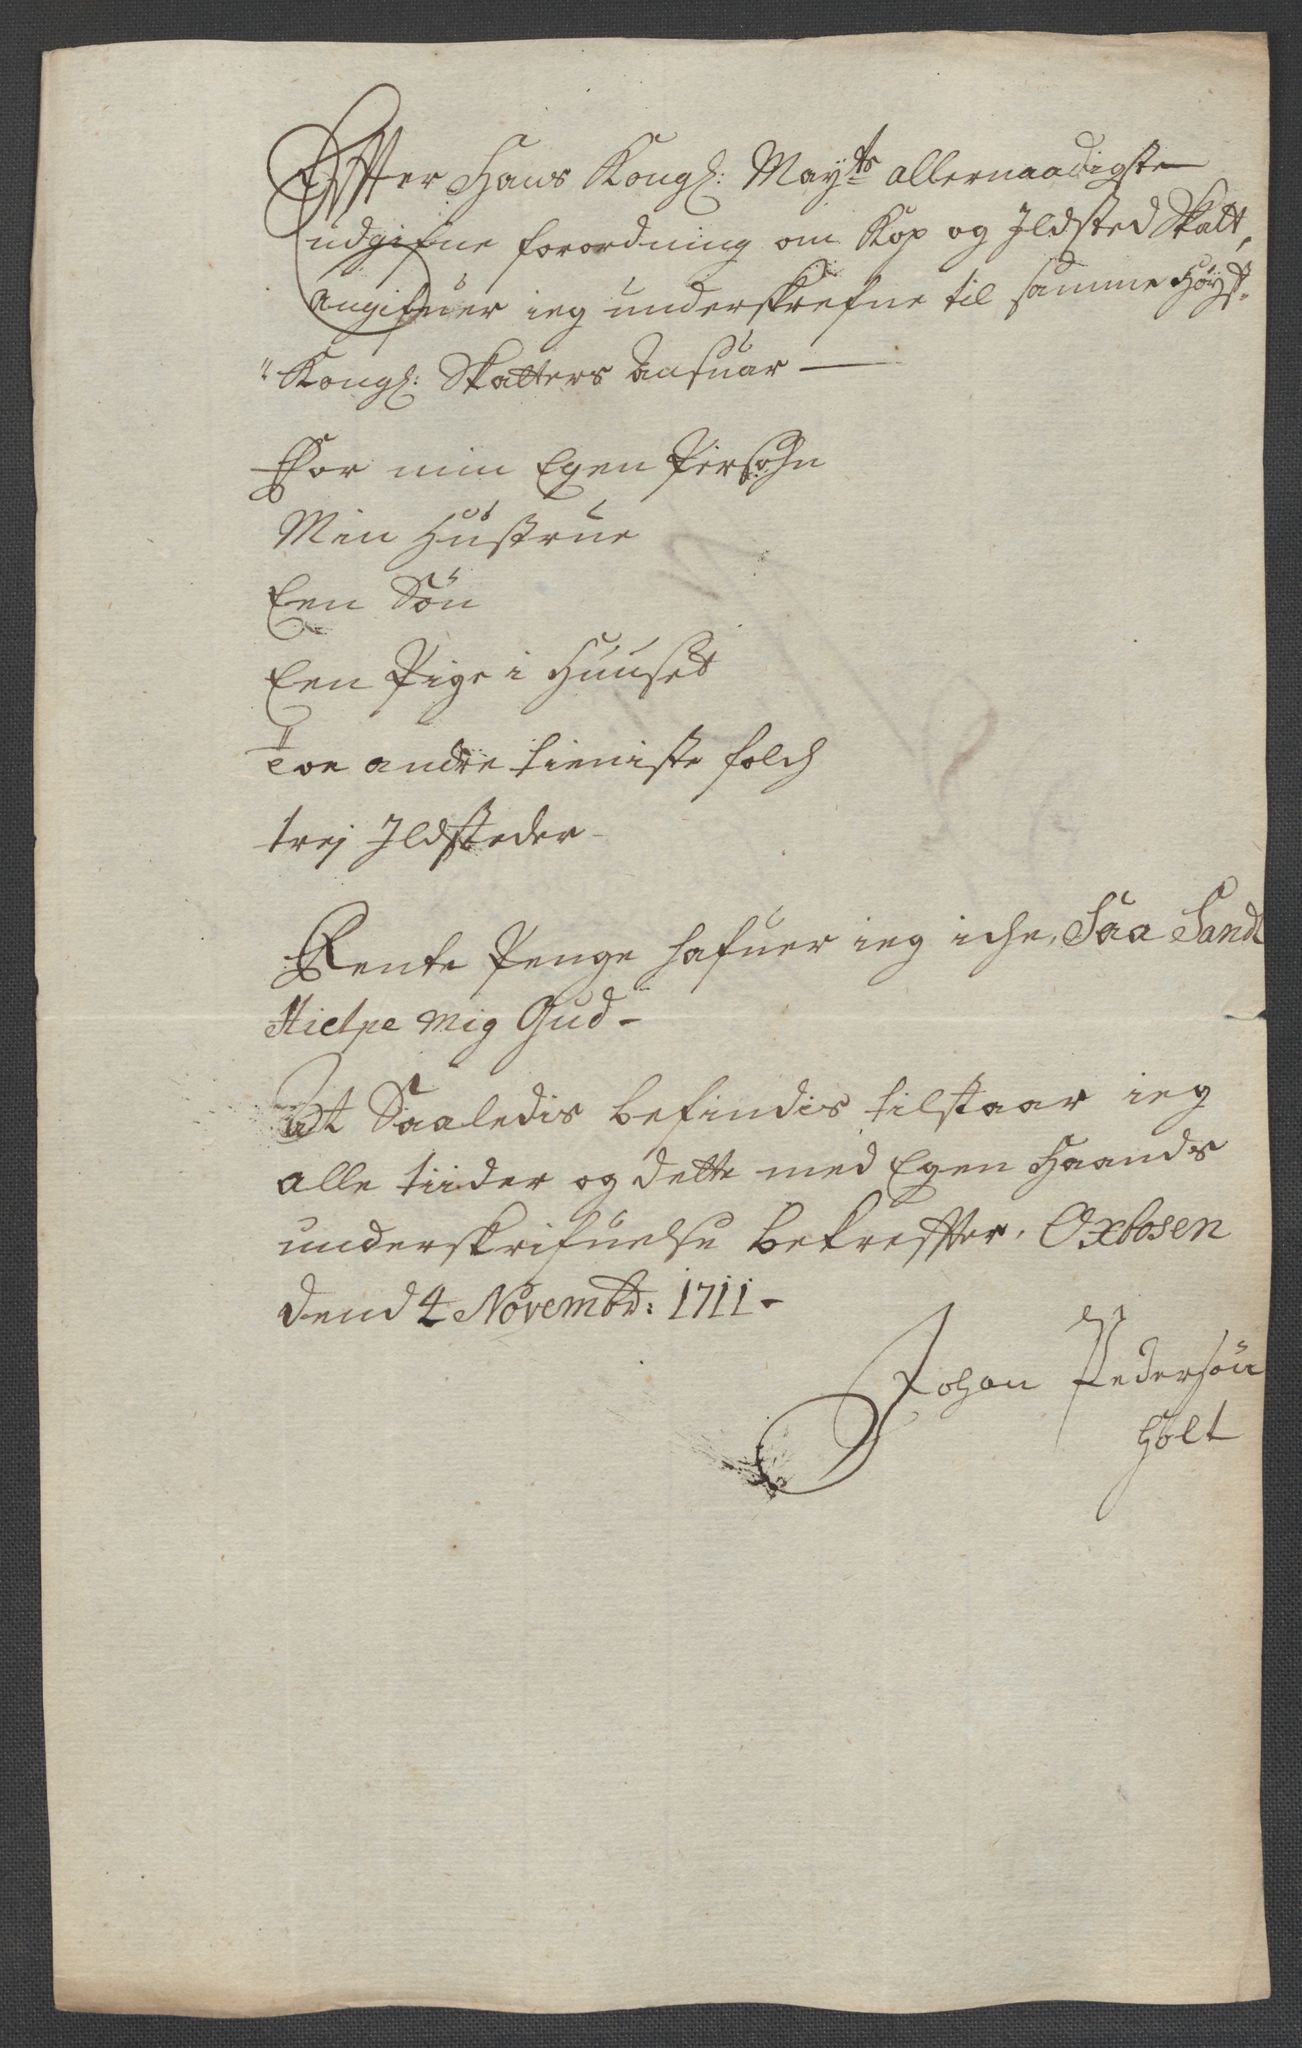 Effter Hans Kongl: Mayts allernaadigste
udgifne forordning om Kop og Ildsted Skatt,
angifuer ieg underskrefne til samme Høyst-
"Kongl: Skatters Ansuar —
For min Egen Persohn
Min Hustrue
Een Søn
Een Pige i Huuset
Toe andre tieniste folch
trej Ildsteder -
Rente Penge hafuer ieg iche, Saa Sandt
Hielpe mig Gud -
At Saaledis befindis tilstaar ieg
alle tiider og dette med Egen Haands
underskrifuelse bekreffter, Oxbosen
dend 4 Novembr: 1711 -
Johan Pedersøn
Holt